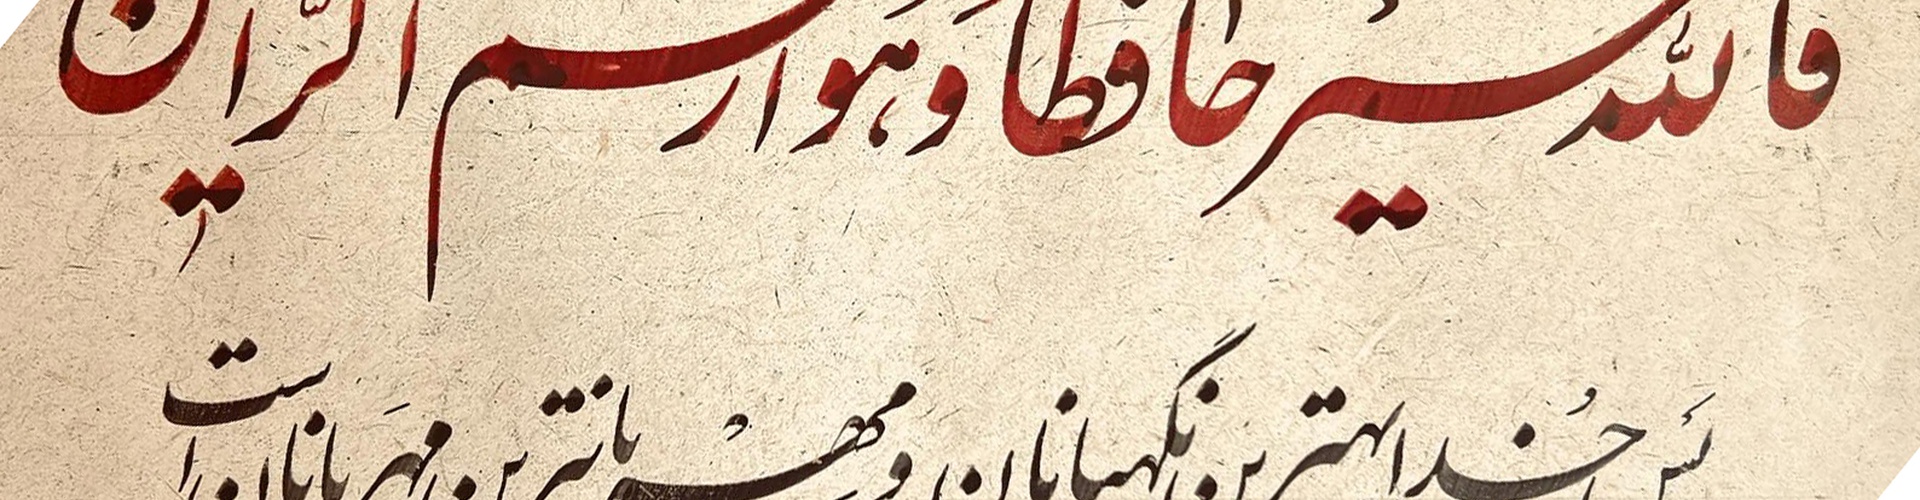 فالله خیر حافظا و هو ارحم الراحمین
پس خدا بهترین نگهبانان و مهربانترین مهربانان است